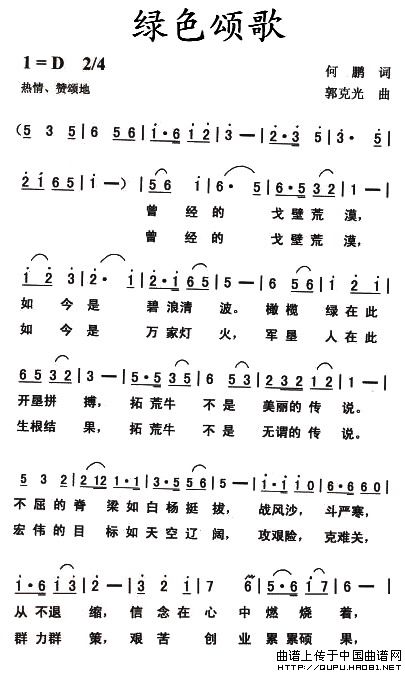 绿色颂歌
1=D 2/4
何鹏 词
热情、赞颂地
郭克光 曲
(5 3 5 | 6 5 6 | 1·6 1 2 | 3 — | 2·3 5 | 3· 5 |
2 1 6 5 | 1 —) | 5 6 1 | 6· 5 | 6·5 3 2 | 1 — |
曾 经 的 戈 壁 荒 漠,
曾 经 的 戈 壁 荒 漠,
1 2 3 | 2· 1 | 2·1 7 6 | 5 — | 6 5 6 | 1 2 1 |
如 今 是 碧 浪 清 波。 橄 榄 绿 在 此
如 今 是 万 家 灯 火, 军 垦 人 在 此
6 5 3 2 | 3 — | 5·3 5 5 | 6 5 3 | 2 3 2 1 2 | 1 — |
开 垦 拼 搏, 拓 荒 牛 不 是 美 丽 的 传 说。
生 根 结 果, 拓 荒 牛 不 是 无 谓 的 传 说。
5 5 3 | 2 1 2 1·3 | 5·5 5 5 | 5 — | 1·1 1 0 | 6·6 6 0 |
不 屈 的 脊 梁 如 白 杨 挺 拔, 战 风 沙, 斗 严 寒,
宏 伟 的 目 标 如 天 空 辽 阔, 攻 艰 险, 克 难 关,
1·6 1 3 | 2 — | 3·2 2 1 | 7 6 | 5·6 1 7 | 6 — |
从 不 退 缩, 信 念 在 心 中 燃 烧 着,
群 力 群 策, 艰 苦 创 业 累 累 硕 果,
曲谱上传于中国曲谱网
http://QUPU.HAO81.NET